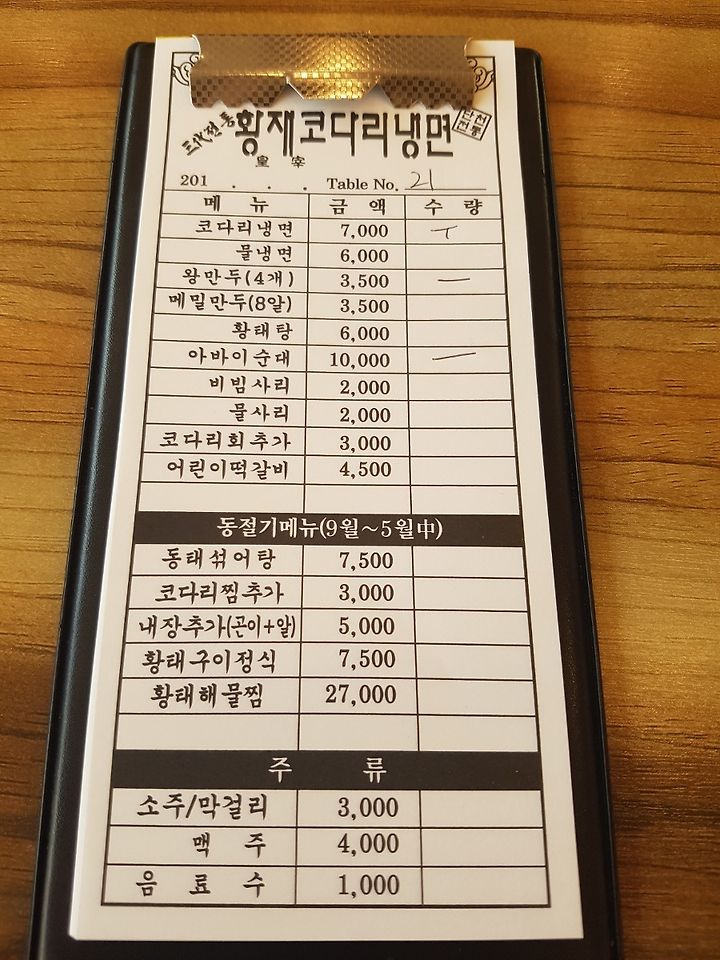 三代전통 황재코다리냉면 단천전통
皇宰
201 . . . Table No. 21
메 뉴 금 액 수 량
코다리냉면 7,000 ㅜ
물냉면 6,000
왕만두(4개) 3,500 一
메밀만두(8알) 3,500
황태탕 6,000
아바이순대 10,000 一
비빔사리 2,000
물사리 2,000
코다리회추가 3,000
어린이떡갈비 4,500
동절기메뉴(9월~5월中)
동태섞어탕 7,500
코다리찜추가 3,000
내장추가(곤이+알) 5,000
황태구이정식 7,500
황태해물찜 27,000
주 류
소주/막걸리 3,000
맥 주 4,000
음 료 수 1,000